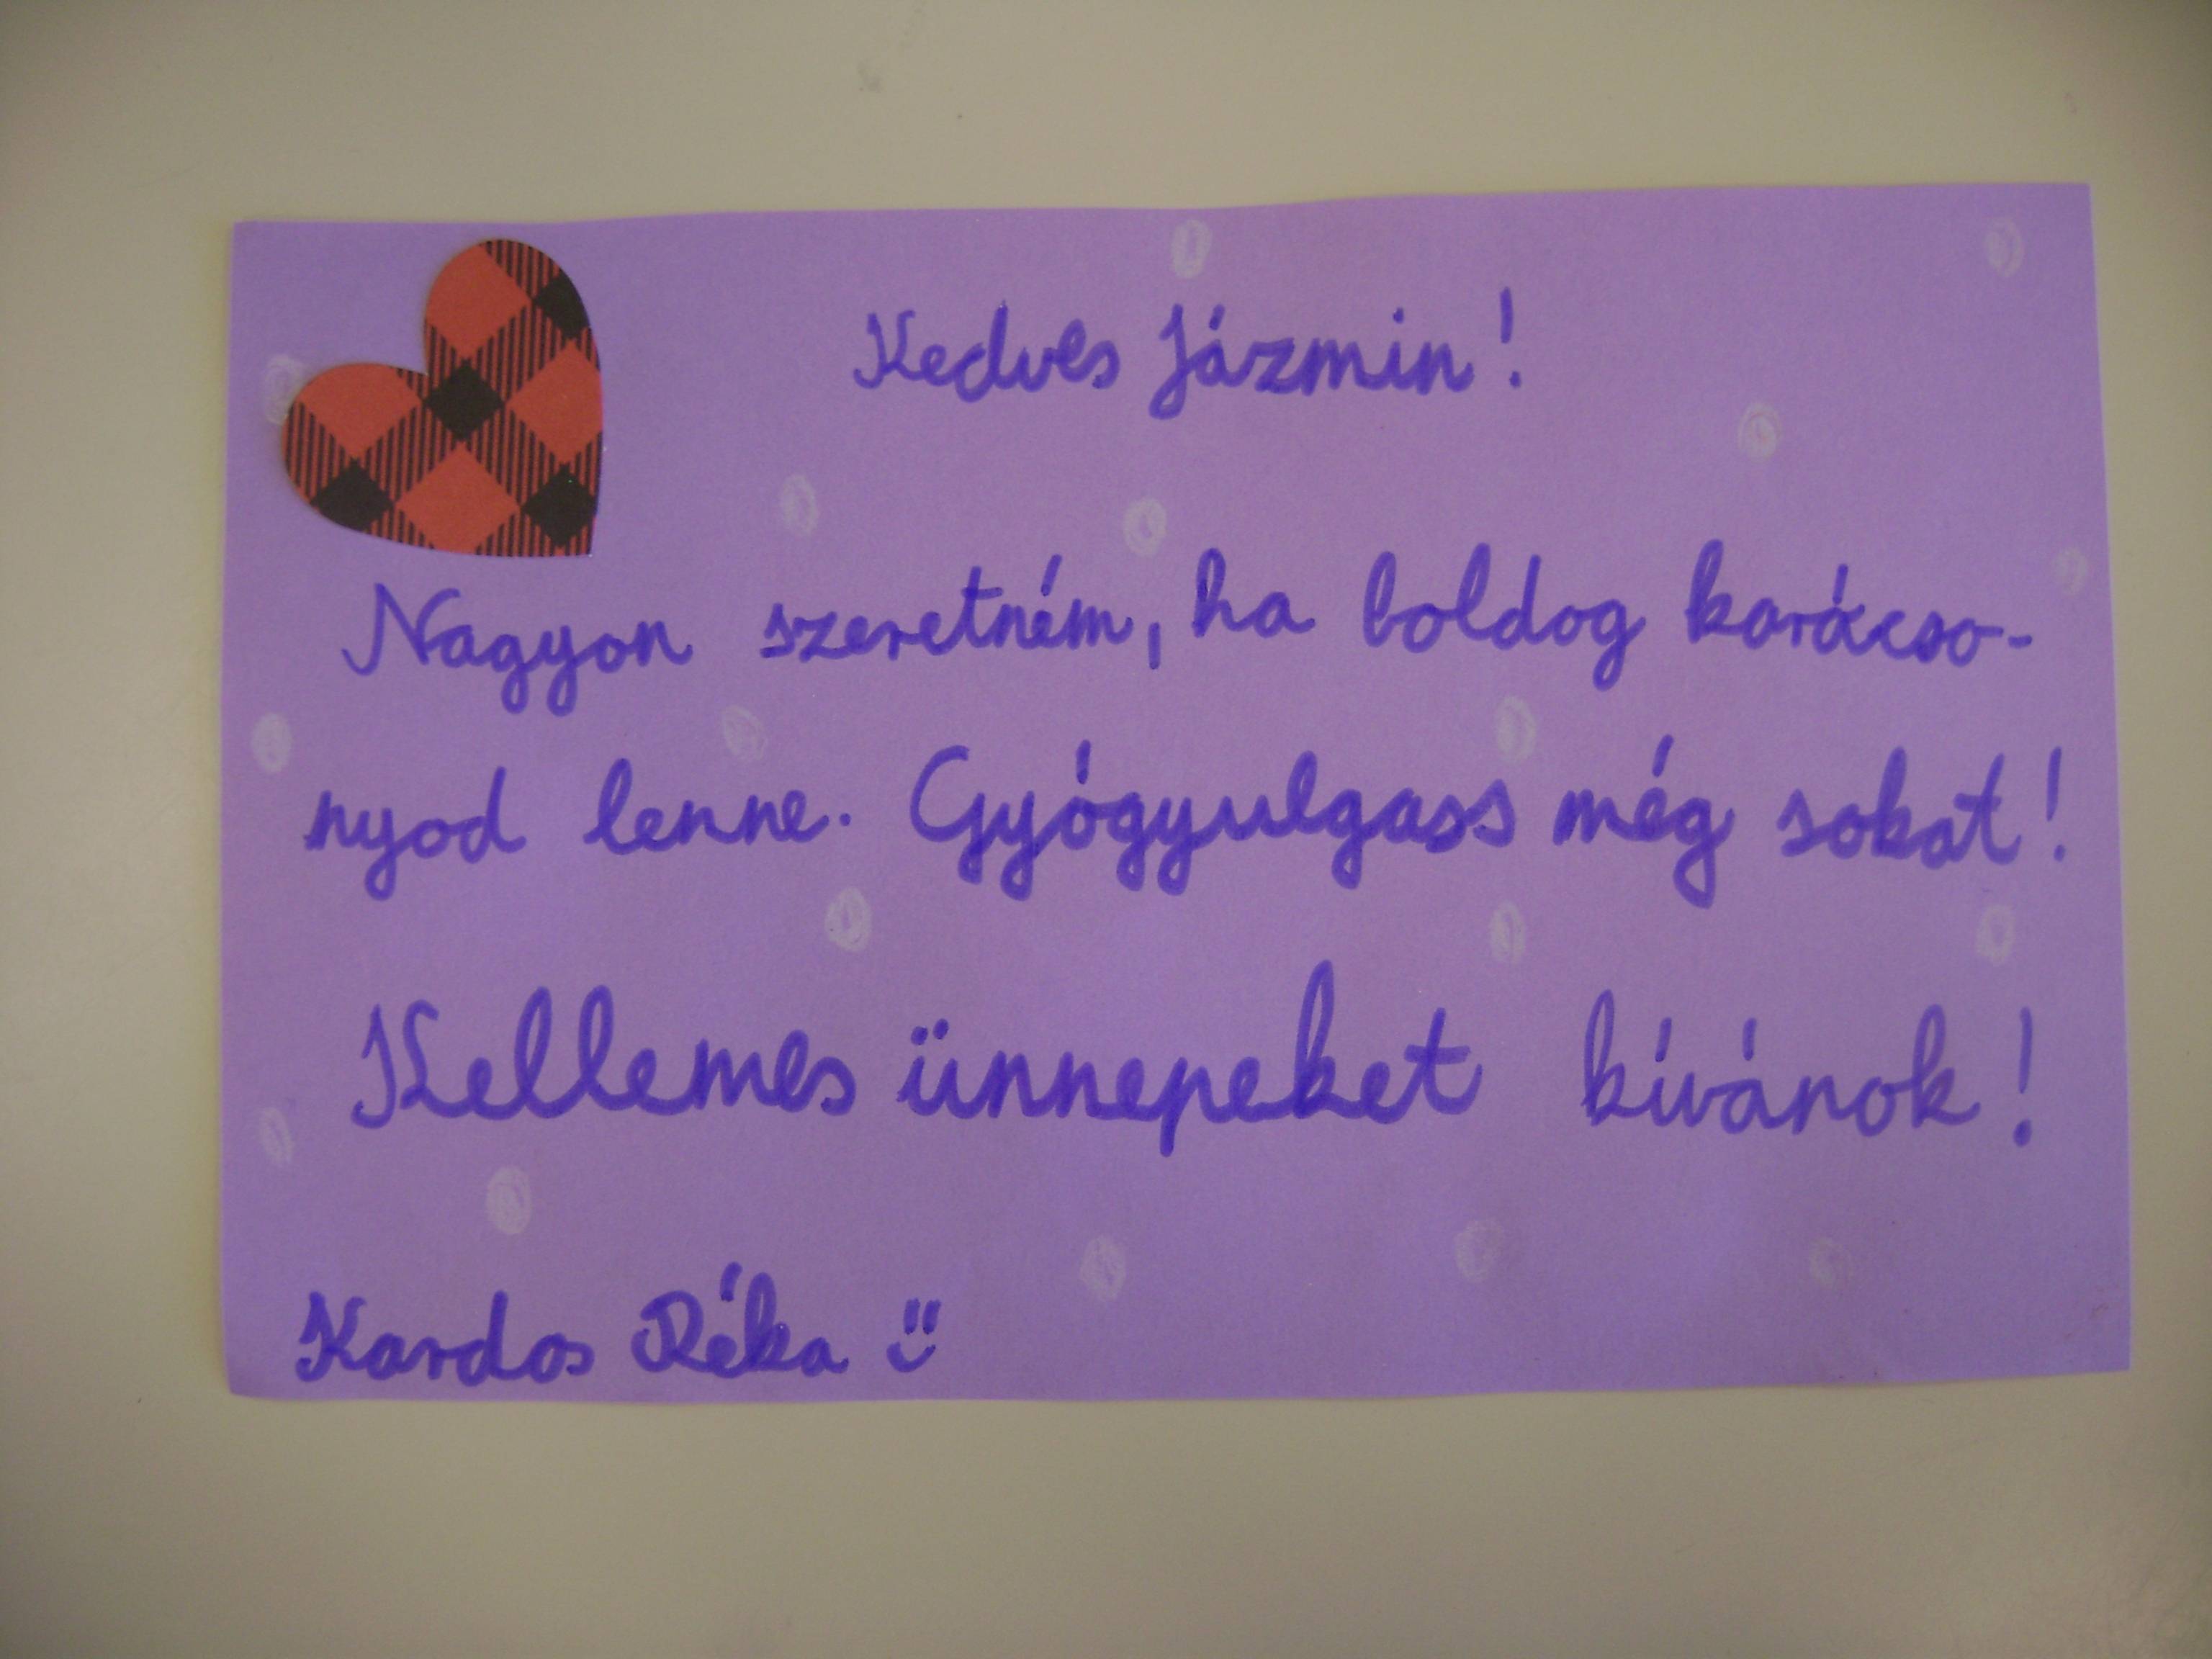 Kedves Jázmin!
Nagyon szeretném, ha boldog karácso-
nyod lenne. Gyógyulgass még sokat!
Kellemes ünnepeket kívánok!
Kardos Réka